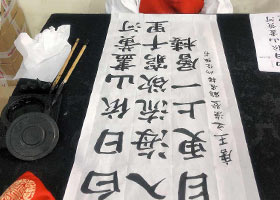 白日依山盡黃河
入海流欲窮千里
目更上一層樓
唐王之渙